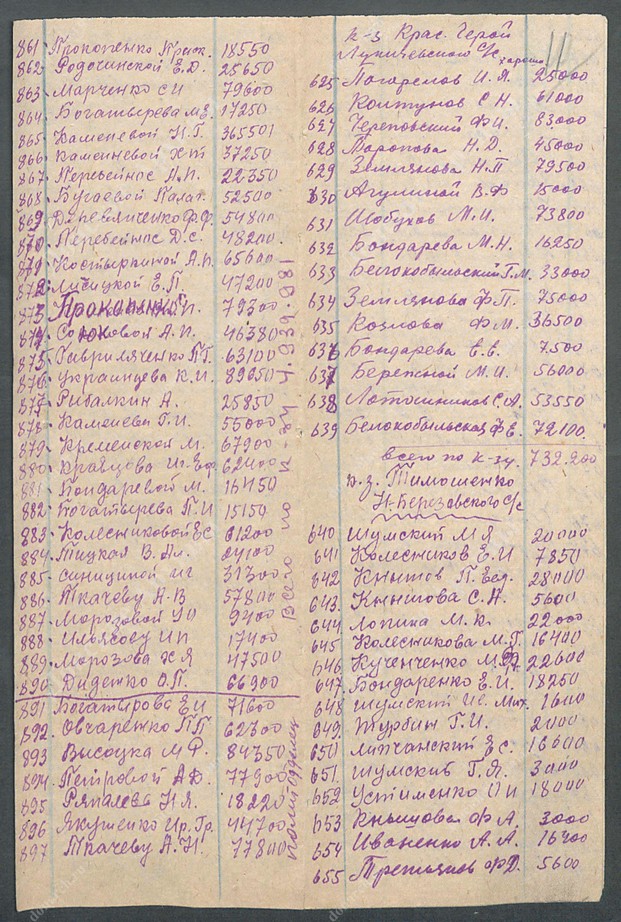 861 Прокопенко Праск. 18550
862 Родочинской Е.Д. 25650
863 Марченко СИ 79600
864 Богатырева М.Е. 17250
865 Каменевой Н.Г. 365501
866 Каменевой Х П 37250
867 Перебейнос А.П. 22350
868 Бугаевой Палаг. 52500
869 Ф.Ф. 54800
870 Перебейнос Д.С. 48200
871 Костыркиной А.П. 65600
872 Лисицкой Е.П. 47200
873 79300
874 Соковой А.П. 46380
875 Гавриляченко П.Г. 63100
876 Украинцева К.И. 89050
877 Рибалкин А. 25850
878 Каменева Г.И. 55000
879 Кременской М. 67900
880 Кравцова 62400
881 Бондаревой М. 16450
882 Богатырева П.И 15150
883 Колесниковой ЕС 61200
884 Тицкая В.
885 Синициной 31300
886 Ткачеву А.В 57800
887 Морозовой УО 9400
888 Ильясову ИП 17400
889 Морозова Х Я 47500
890 Диденко О.П. 66900
891 Богатырова Е И 71600
892 Овчаренко П П 62300
893 Высоцка М Р. 84350
894 Петровой А.Д. 77900
895 Ряполева Н Я. 18220
896 Якушенко Ир. Гр. 44700
897 Ткачеву А.Н. 77800
Всего по К-зу 4.939.981
11
к-з Крас. Герой
625 Погорелов И.Я. 25000
626 Колтунов С Н. 61000
627 Череповский Ф И. 83000
628 Поропова Н.Д. 45000
629 Землянова Н.П 79500
630 В.Ф 15000
631 Шобухов М.И. 73800
632 Бондарева М.Н. 16250
633 Белокобыльский Г.М. 33000
634 Землянова Ф.П. 75000
635 Козлова Ф М. 36500
636 Бондарева Е.в. 7.500
637 Бережной М.И. 56000
638 Лотошников С.А. 53550
639 Белокобыльская Ф Е. 72100.
всего по к-зу. 732.200
к.з. Тимошенко
Н-Березовского с/с
640 Шумский М Я 20000
641 Колесников Е.И 7850
642 28000
643. Кнышова С.А. 5600
644 Лопина М.К. 22000
645 Колесникова М.Г. 16400
646 Кученченко М. 22600
647 Бондаренко Е.И. 18250
648 Шумский Ис. Мих. 1600
649 Журбин Г.И. 2000
650 Липчанский Е С. 16600
651. Шумский Г.Я. 3000
652 Устименко О И 18000
653 Кнышова Ф А. 3000
654 Иваненко А.А. 16400
655 Третьяков Ф Д. 5600